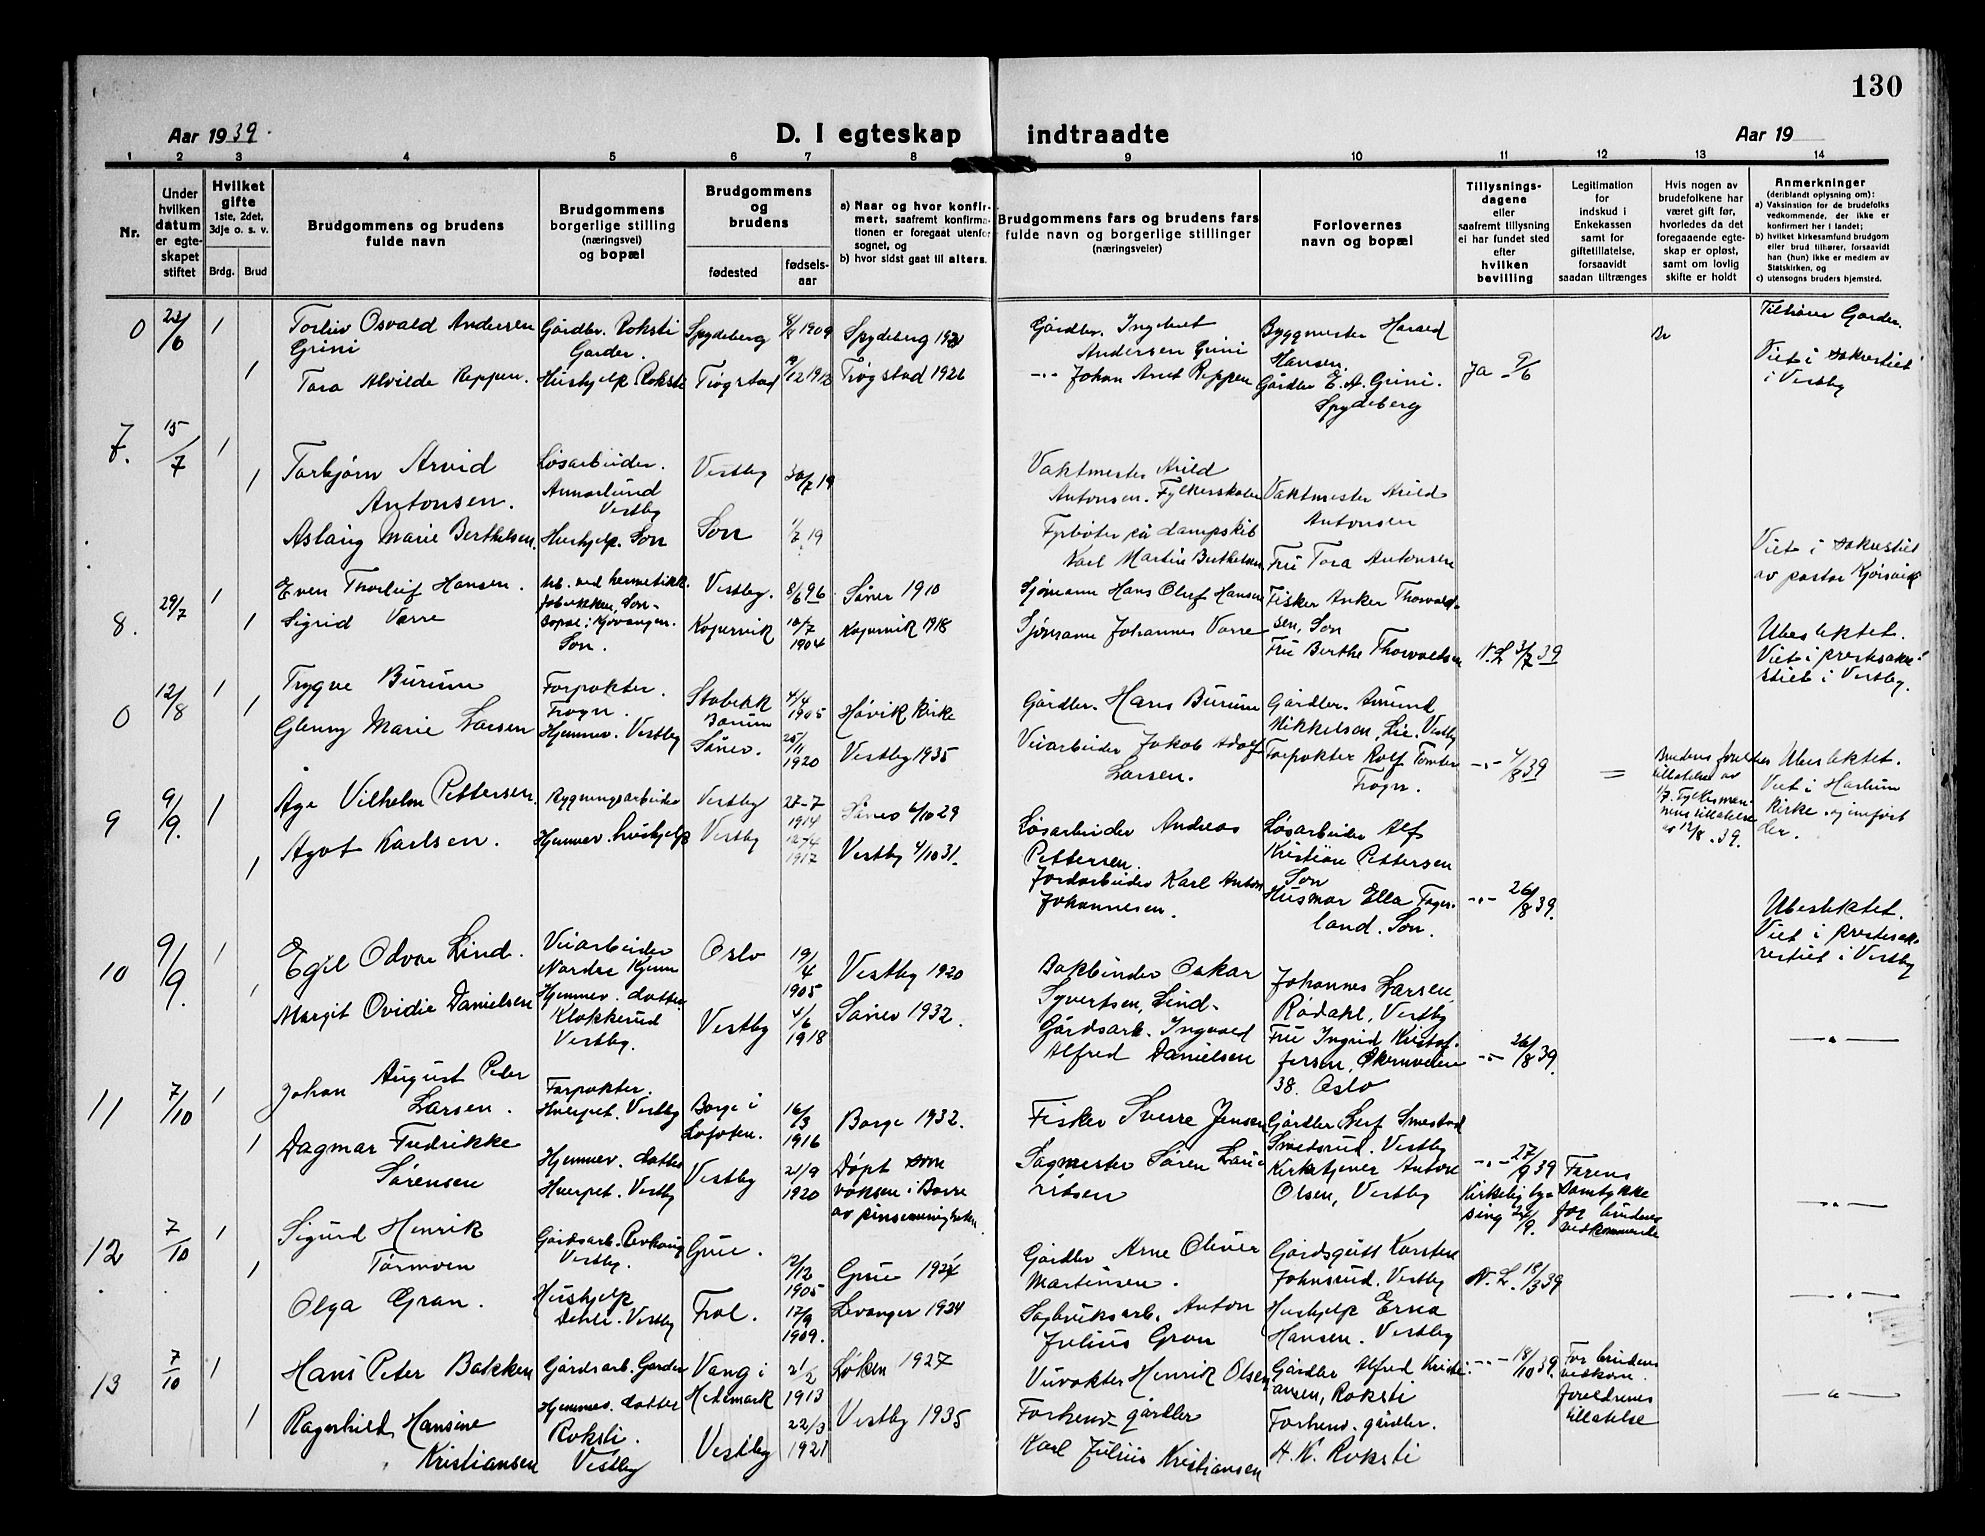 130
Aar 1939.
D. I egteskap indtraadte
Aar 19
1 2 3 4 5 6 7 8 9 10 11 12 13 14
Nr.
Under
hvilken
datum
er egte-
skapet
stiftet
Hvilket
gifte
1ste, 2det,
3dje o. s. v.
Brdg. Brud
Brudgommens og brudens
fulde navn
Brudgommens
borgerlige stilling
(næringsvei)
og bopæl
Brudgommens
og
brudens
fødested
fødsels-
aar
a) Naar og hvor konfir-
mert, saafremt konfirma-
tionen er foregaat utenfor
sognet, og
b) hvor sidst gaat til alters.
Brudgommens fars og brudens fars
fulde navn og borgerlige stillinger
(næringsveier)
Forlovernes
navn og bopæl
Tillysnings-
dagene
eller
saafremt tillysning
ei har fundet sted
efter
hvilken
bevilling
Legitimation
for
indskud i
Enkekassen
samt for
giftetillatelse,
forsaavidt
saadan tiltrænges
Hvis nogen av
brudefolkene har
været gift før,
hvorledes da det
foregaaende egte-
skap er opløst,
samt om lovlig
skifte er holdt
Anmerkninger
(deriblandt oplysning om):
a) Vaksinstion for de brudefolks
vedkommende, der ikke er
konfirmert her i landet;
b) hvilket kirkesamfund brudgom
eller brud tilhører, forsaavidt
han (hun) ikke er medlem av
Statskirken, og
c) utensogns bruders hjemsted.
0
1
Osvald Andersen
Grini
Gårdbr. Roksti
Garder.
Spydeberg
1909
Spydeberg
Gårdbr. Ingebret
Andersen Grini
Byggmester Harald
Hansen.
Tilhører Garder.
1
Tora Alvilde Reppen.
Hushjelp Roksti
Trøgstad
12 1912
Trøgstad 1926
-"- Johan Reppen
Gårdbr E. A. Grini.
Spydeberg
Ja 9/6
Viet i sakrestiet
i Vestby
7.
15/7
1
Torbjørn Arvid
Antonsen.
Løsarbeider.
Vestby
Vestby
30/7 19
Vaktmester Arild
Antonsen. Fylkesskolen
Vaktmester Arild
Antonsen
1
Aslaug Marie Berthelsen.
Hushjelp. Son
Son
1/7 19
Fyrbøter på dampskib
Karl Martin Berthelsen
Fru Tora Antonsen
Viet i sakrestiet
av pastor
8.
29/7
1
Even Thorleif Hansen.
Arb. ved hermetikk-
fabrikken, Son-
Vestby.
8/6 96
Såner 1910
Sjømann Hans Oluf Hansen
Fisker Anker Thorvald-
sen, Son
1
Sigrid Varre
Bopæl:
Son.
Kopervik
10/7
1904
Kopervik 1918
Sjømann Johannes Varre
Fru Berthe Thorvaldsen
N.L. 3/7 39
Ubeslektet.
Viet i prestesakre-
stiet i Vestby.
0
12/8
1
Trygve Burum
Forpakter.
Frogn.
Stabekk
Bærum
4/4
1905
Høvik kirke
Gårdbr. Hans Burum
Gårdbr. Amund
Mikkelsen, Lie. Vestby
1
Glenny Marie Larsen
Hjemmev. Vestby
Såner.
25/11
1920
Vestby 1935
Veiarbeider Jakob Adolf
Larsen.
Forpakter Rolf Tomter
Frogn.
-"- 4/8 39
=
Brudens foreldres
tillatelse av
1/7. Fylkesman-
nens tillatelse
av 12/8. 39.
Ubeslektet.
Viet i
kirke. ej innført
der.
9
9/9.
1
Åge Vilhelm Pettersen.
Bygningsarbeider
Vestby
27-7
1914
Såner 6/10 29
Løsarbeider Andreas
Pettersen.
Løsarbeider Alf
Kristian Pettersen
Son
1
Agot Karlsen.
Hjemmev. hushjelp
Vestby
12-4
1917
Vestby 4/10 31.
Jordarbeider Karl Anton
Johannesen.
Husmor Ella Fager-
land. Son.
-"- 26/8 39.
Ubeslektet.
Viet i prestesak-
restiet i Vestby
10
9/9.
1
Egil Odvar Lind.
Veiarbeider
Nordre
Oslo
19/4
1905
Vestby 1920
Bokbinder Oskar
Syvertsen, Lind-
Johannes Larsen,
Rødahl, Vestby
1
Margit Ovidie Danielsen
Hjemmev. datter
Klokkerud
Vestby.
Vestby
4/6
1918
Såner 1932.
Gårdsarb. Ingvald
Alfred Danielsen
Fru Ingrid Kristof-
fersen,
38. Oslo
-"- 26/8 39.
— " —
11
7/10
1
Johan August Peder
Larsen.
Forpakter.
Huerpet. Vestby
Borge i
Lofoten.
16/3
1916
Borge 1932.
Fisker Sverre Jensen
Gårdbr Smestad
Smedsrud. Vestby
1
Dagmar Fredrikke
Sørensen
Hjemmev. datter
Huerpet. Vestby
Vestby
21/9
1920
Døpt som
voksen i Borre
av pinsemenigheten
Sagmester Søren Lau-
ritsen
Kirketjener Anton
Olsen, Vestby
-"- 27/9 39
Kirkelig lys-
sing
Farens
samtykke
for brudens
vedkommende
— " —
12
7/10
1
Sigurd Henrik
Tormoen
Gårdsarb.
Vestby.
Grue.
2/12
1905
Grue 1924
Gårdbr Arne Oliver
Martinsen.
Gårdsgutt Karsten
Johnsrud. Vestby
N.L.
1
Olga Gran.
Hushjelp
Dehli. Vestby
Frol.
17/9
1909.
Levanger 1924
Sagbruksarb. Anton
Julius Gran
Hushjelp Erna
Hansen. Vestby
— " —
13
7/10
1
Hans Peter Bakken
Gårdsarb. Garder
Vang i
Hedmark
2/2
1913
Løken 1927
Veivokter Henrik Olsen
Gårdbr Alfred Kristi-
ansen, Roksti
-"- 18/10 39.
For brudens
vedkom.
foreldrenes
tillatelse
1
Ragnhild Hansine
Kristiansen
Hjemmev. datter
Roksti.
Vestby
Vestby
22/3
1921
Vestby 1935
Forhenv. gårdbr
Karl Julius Kristiansen
Forhenv. gårdbr.
H. K. Roksti
— " —